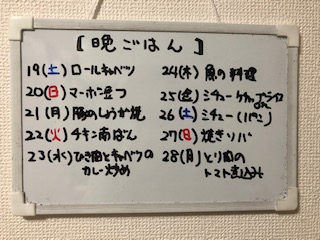 [晩ごはん]
19(土) ロールキャベツ
20(日) マーボー豆つ
21(月) 豚のしょうが焼
22(火) チキン南ばん
23(水) ひき肉とキャベツの
カレー炒め
24(木) 魚の料理
25(金) シチュー
26(土) シチュー
27(日) 焼きソバ
28(月) とり肉の
トマト煮込み